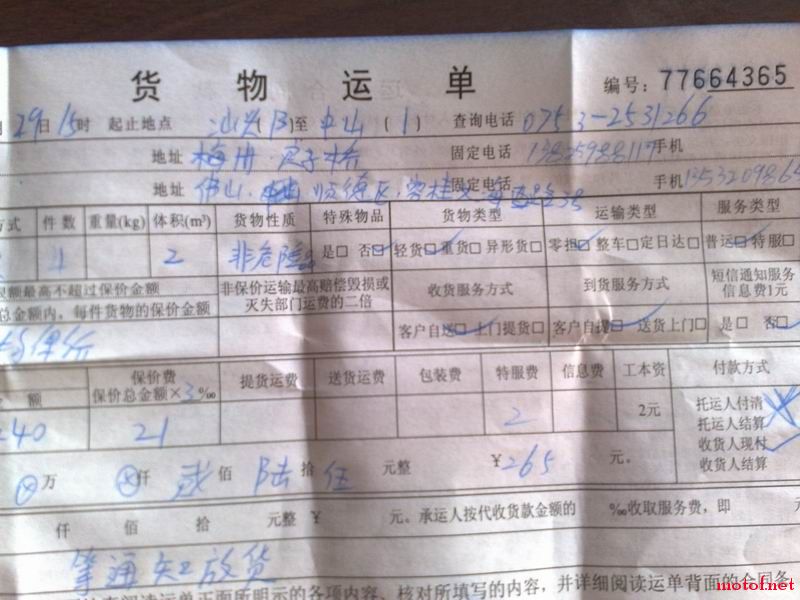 货物运单
编号：77664365
月29日15时 起止地点 汕头( )至中山( ) 查询电话 0753-2531266
地址 梅州 固定电话 手机
地址 佛山 顺德区 手机
方式 件数 重量(kg) 体积(m³) 货物性质 特殊物品 货物类型 运输类型 服务类型
1 2 非危险 是□ 否□ 轻货□ 重货□ 异形货□ 零担□ 整车□ 定日达□ 普运□ 特服□
限额最高不超过保价金额 非保价运输最高赔偿毁损或 收货服务方式 到货服务方式 短信通知服务
总金额内，每件货物的保价金额 灭失部门运费的二倍 信息费1元
保价 客户自送□ 上门提货□ 客户自提□ 送货上门□ 是□ 否□
额 保价费 提货运费 送货运费 包装费 特服费 信息费 工本资 付款方式
保价总金额×3‰
240 21 2 2元
托运人付清
托运人结算
收货人现付
收货人结算
⊗万 ⊗仟 贰佰 陆拾 伍元整 ￥265元。
仟 佰 拾 元整 ￥ 元。承运人按代收货款金额的 ‰收取服务费，即 元
等通知放货
阅读运单正面所明示的各项内容、核对所填写的内容，并详细阅读运单背面的合同条
motof.net